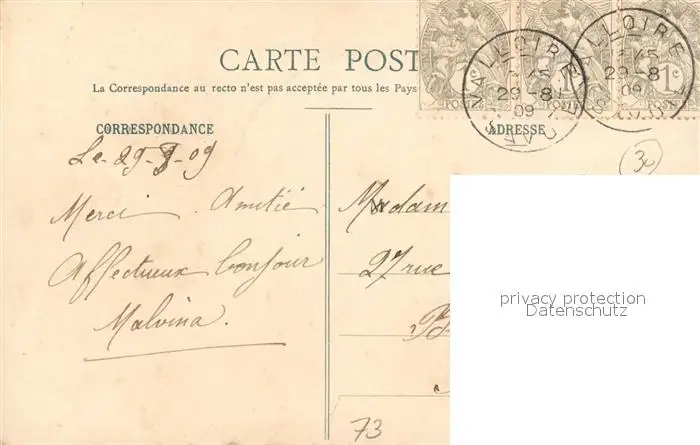 CARTE POST
La Correspondance au recto n'est pas acceptée par tous les Pays
CORRESPONDANCE
ADRESSE
VALLOIRE
29-8
09
VALLOIRE
29-8
09
1c
1c
1c
POSTE
Le 29-8-09
Merci. Amitié
Affectueux bonjour
Malvina.
Madam
27 rue
30
73
privacy protection
Datenschutz